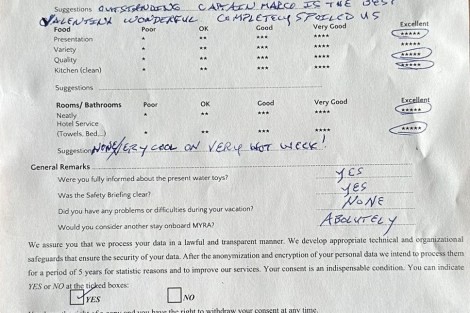 Suggestions OUTSTANDING CAPTAIN MARCO IS THE BEST
VALENTINA WONDERFUL COMPLETELY SPOILED US
Food Poor OK Good Very Good Excellent
Presentation * ** *** **** *****
Variety * ** *** **** *****
Quality * ** *** **** *****
Kitchen (clean) * ** *** **** *****
Suggestions
Rooms/ Bathrooms Poor OK Good Very Good Excellent
Neatly * ** *** **** *****
Hotel Service
(Towels, Bed...) * ** *** **** *****
Suggestions NONE/VERY COOL ON VERY HOT WEEK!
General Remarks
Were you fully informed about the present water toys? YES
Was the Safety Briefing clear? YES
Did you have any problems or difficulties during your vacation? NONE
Would you consider another stay onboard MYRA? ABOLUTELY
We assure you that we process your data in a lawful and transparent manner. We develop appropriate technical and organizational
safeguards that ensure the security of your data. After the anonymization and encryption of your personal data we intend to process them
for a period of 5 years for statistic reasons and to improve our services. Your consent is an indispensable condition. You can indicate
YES or NO at the ticked boxes:
YES NO
you have the right to withdraw your consent at any time.